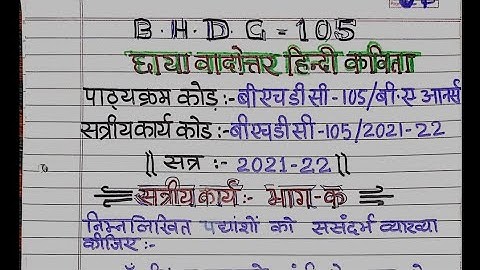 B.H.D.C-105
छायावादोत्तर हिन्दी कविता
पाठ्यक्रम कोड़ :- बीएचडीसी-105/बी.ए आनर्स
सत्रीय कार्य कोड :- बीएचडीसी-105/2021-22
|| सत्र :- 2021-22||
सत्रीय कार्य :- भाग-क
निम्नलिखित पद्यांशों को ससंदर्भ व्याख्या
कीजिए :-